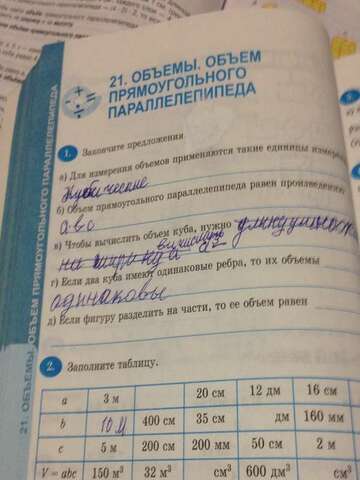 21. ОБЪЕМЫ. ОБЪЕМ
ПРЯМОУГОЛЬНОГО
ПАРАЛЛЕЛЕПИПЕДА
1. Закончите предложения.
а) Для измерения объемов применяются такие единицы измерен
Кубические
б) Объем прямоугольного параллелепипеда равен произведению
авс
в) Чтобы вычислить объем куба, нужно
вычислить
г) Если два куба имеют одинаковые ребра, то их объемы
одинаковы
д) Если фигуру разделить на части, то ее объем равен
2. Заполните таблицу.
a 3 м 20 см 12 дм 16 см
b 10 м 400 см 35 см дм 160 мм
c 5 м 200 см 200 мм 50 см 2 м
V = abc 150 м³ 32 м³ см³ 600 дм³ см³
21. ОБЪЕМЫ. ОБЪЕМ ПРЯМОУГОЛЬНОГО ПАРАЛЛЕЛЕПИПЕДА